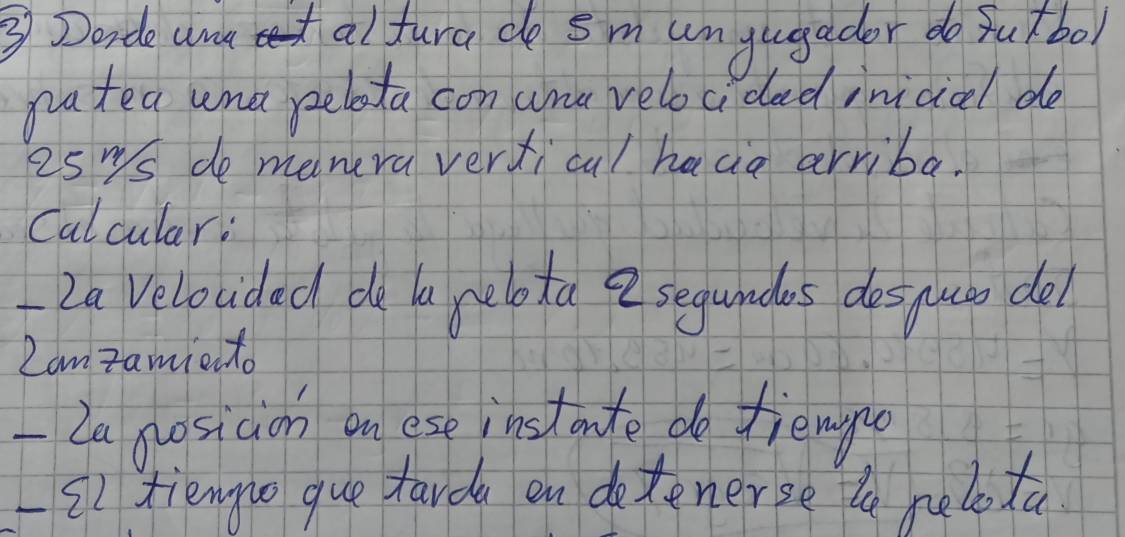 ③ Desde una altura de 5 m un jugador de futbol
patea una pelota con una velocidad inicial de
25 m/s de manera vertical hacia arriba.
Calcular:
- La velocidad de la pelota 2 segundos despues del
Lanzamiento
- La posición en ese instante de tiempo
- El tiempo que tarda en detenerse la pelota.